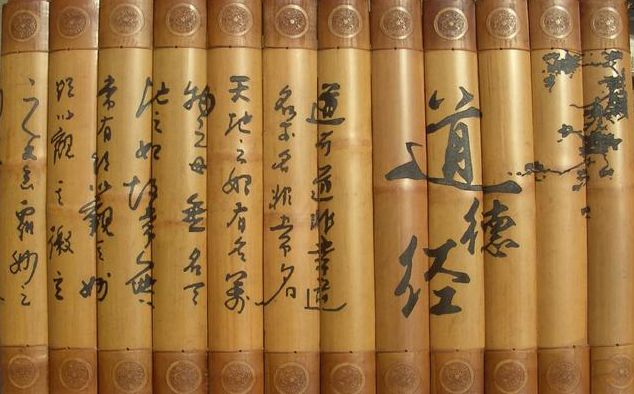 道德经
道可道非常道
名可名非常名
天地之始有名萬
物之母無名天
地之始故常無
常有欲以觀其妙
欲以觀其徼
之又玄眾妙之